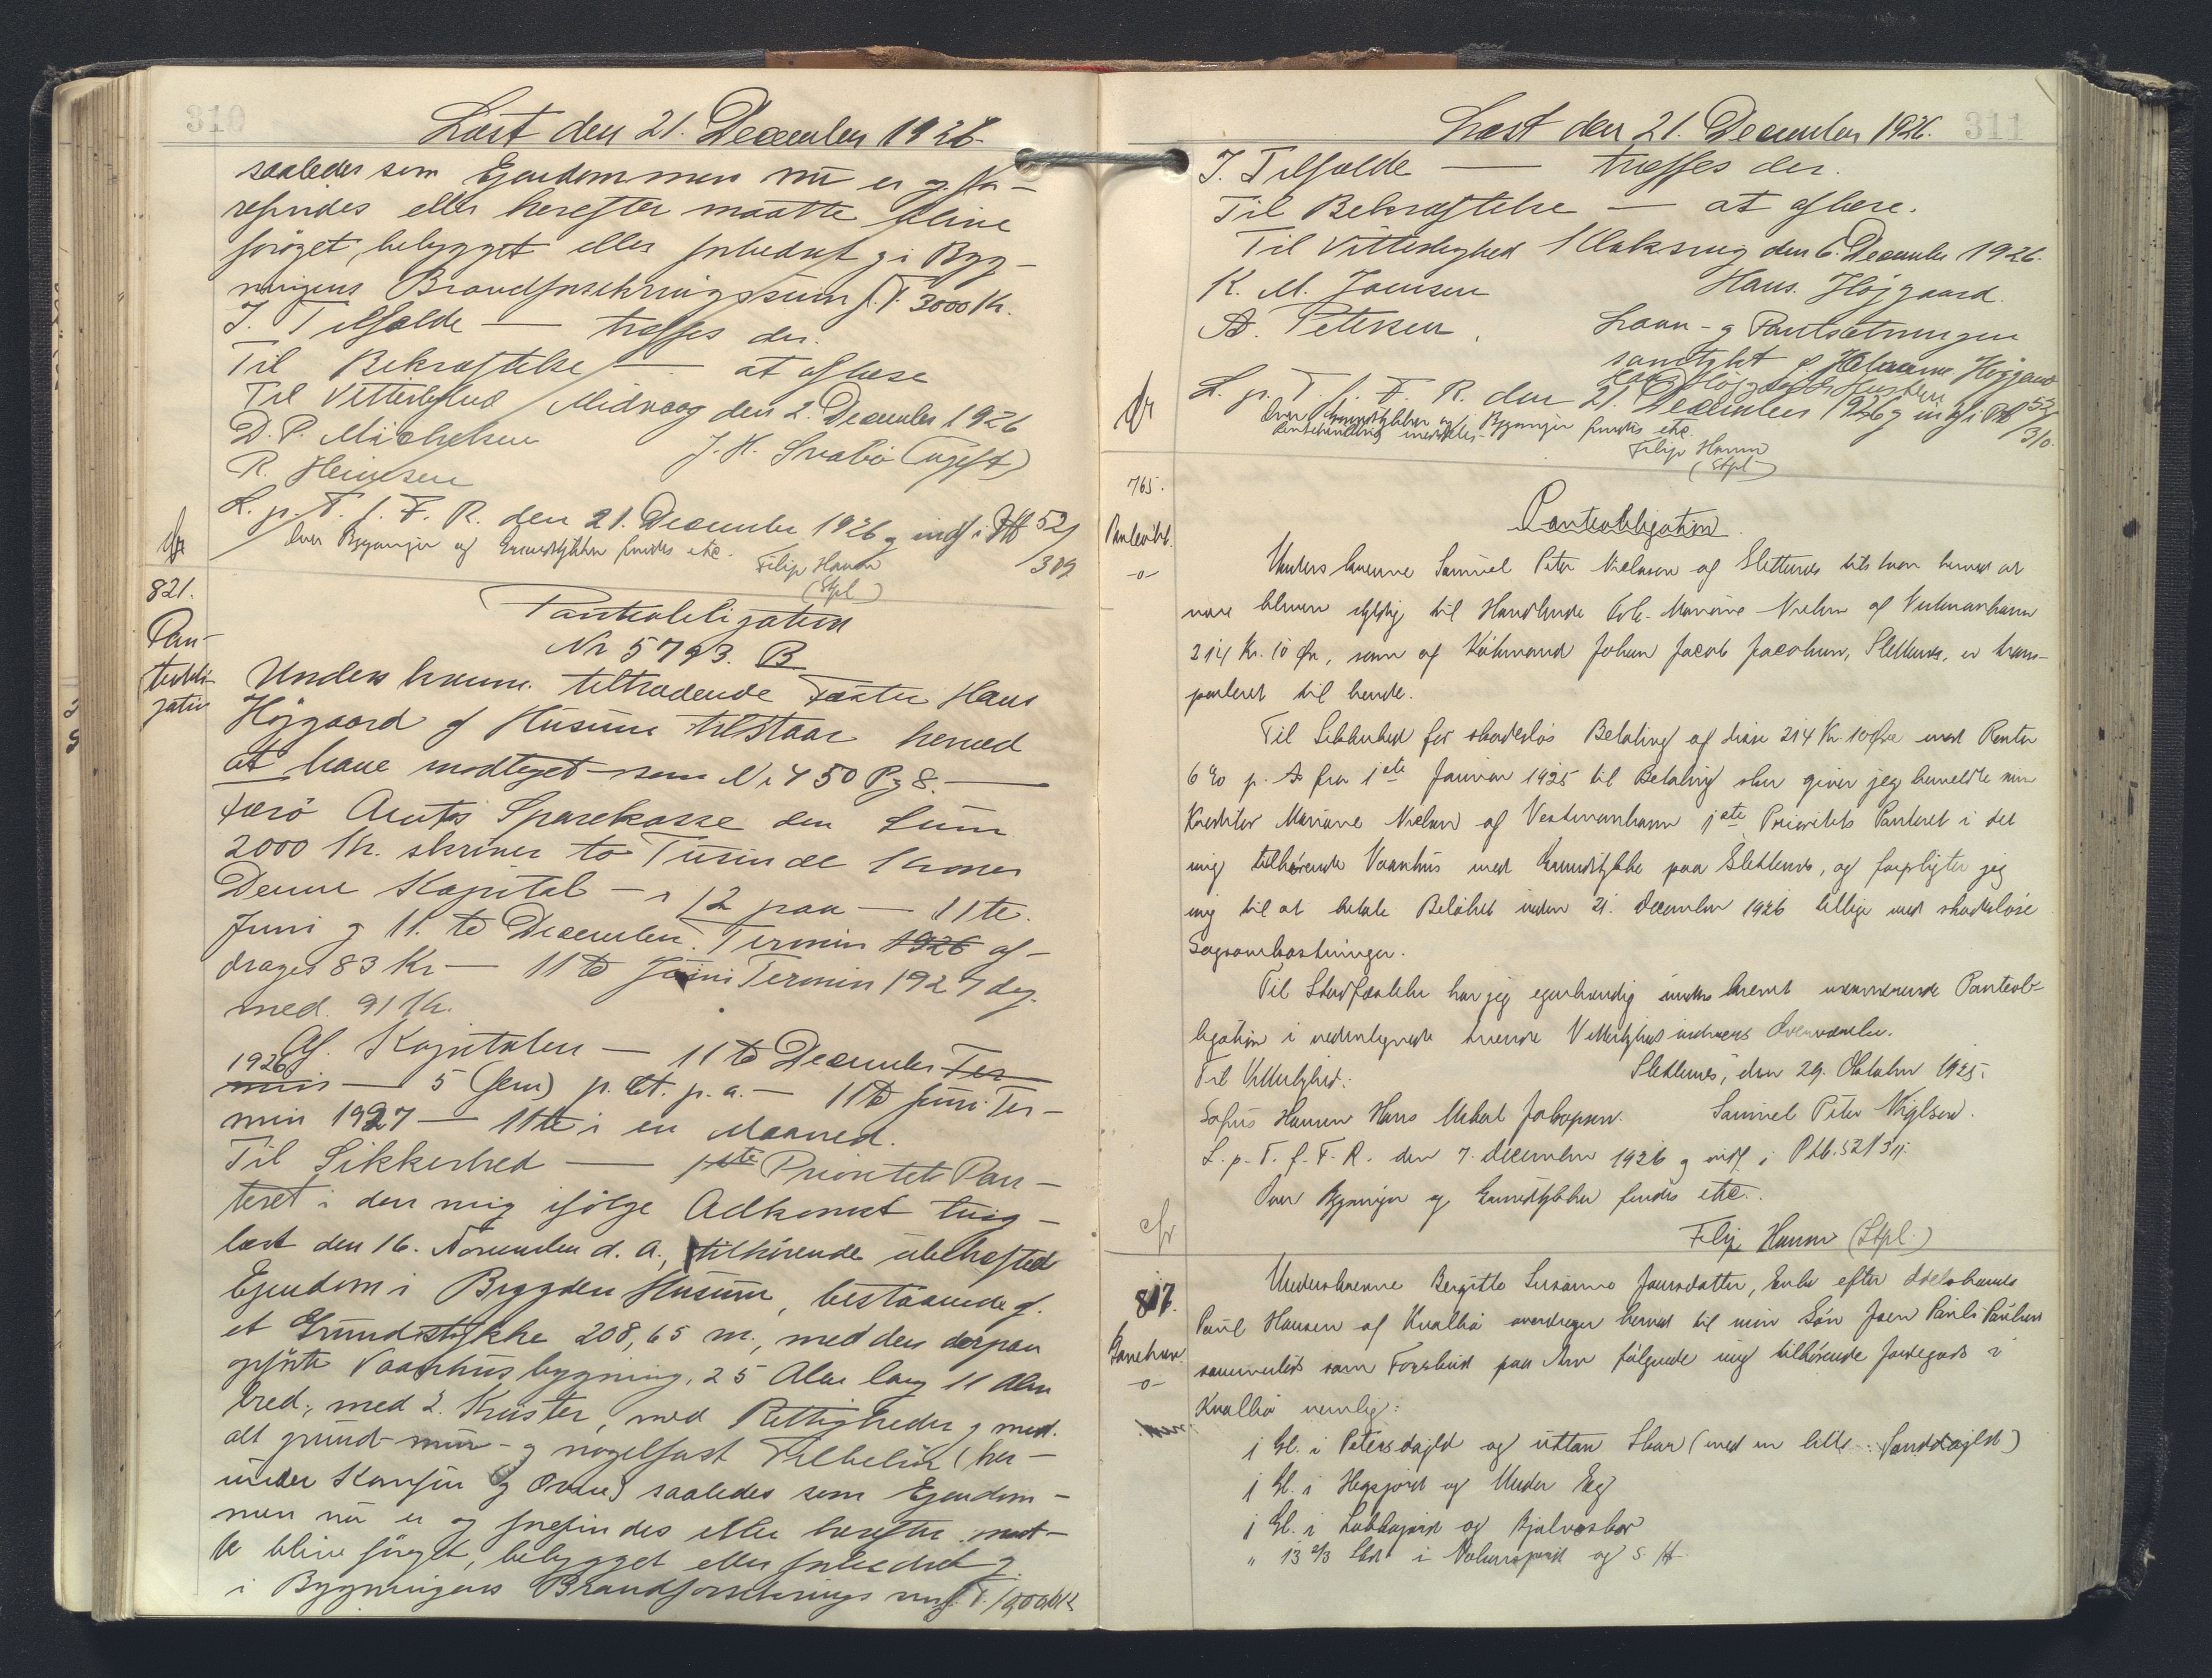 310
Læst den 21. December 1926.
saaledes som Ejendommen nu er og fo-
refindes eller herefter maatte blive
forøget, bebygget eller forbedret og i Byg-
ningens Brandforsikringssum f. T. 3000 Kr.
I Tilfælde — træffes der.
Til Bekræftelse — at aflæse
Til Vitterlighed Midvaag den 2. December 1926
D. P. Michelsen J. H. Svabo (ugift)
R. Heinesen
L. p. T. f. F. R. den 21. December 1926 og indf. i Ptb 52/309
Over Bygninger og Grundstykker findes etc.
Filip Hansen
(Stpl)
821.
Pan-
teobli-
gation
Panteobligation
Nr 5793. B
Underskrevne tiltrædende Fæster Hans
Højgaard af Husum tilstaar herved
at have modtaget som Nr 450 Pg 8. —
Færø Amts Sparekasse den Sum
2000 Kr. skriver to Tusinde Kroner
Denne Kapital — 12 paa — 11te.
Juni og 11. te December. Termin 1926 af-
drages 83 Kr — 11te Juni Termin 1927 dog
med. 91 Kr.
Af Kapitalen — 11te December Ter
1926
min — 5 (fem) p. Ct. p. a. — 11te Juni Ter-
min 1927 — 11te i en Maaned.
Til Sikkerhed — 1ste Prioritets Pan-
teret i den mig ifølge Adkomst ting-
læst den 16. November d. A., tilhørende ubehæftede
Ejendom i Bygden Husum, bestaaende af.
et Grundstykke 208,65 m., med den derpaa
opførte Vaanhusbygning, 25 Alen lang 11 Alen
bred, med 2. Kvister, med Rettigheder og med.
alt grund- mur- og nagelfast Tilbehør (her-
under Komfur og Ovne) saaledes som Ejendom-
men nu er og forefindes eller herefter maat-
te blive forøget, bebygget eller forbedret og
i Bygningens Brandforsikringssum f. T.
311
Læst den 21. December 1926.
I Tilfælde — træffes der.
Til Bekræftelse — at aflæse.
Til Vitterlighed Klaksvig den 6. December 1926.
K. M. Joensen Hans. Højgaard.
A. Petersen. Laan- og Pantsætningen
samtykt af Højgaard
Hans Højgaards Hustru
L. p. T. f. F. R. den 21. December 1926 og indf. i Ptb 52/310.
Over Grundstykker og Bygninger findes etc.
Filip Hansen
(Stpl)
765.
Panteobl.
-o-
Panteobligation.
Underskrevne Samuel Peter Nielsen af Slettenæs tilstaar herved at
være bleven skyldig til Handlende Enke Mariane Nielsen af Vestmanhavn
214 Kr. 10 Øre, som af Købmand Johan Jacob Jacobsen, Slettenæs, er trans-
porteret til hende.
Til Sikkerhed for skadesløs Betaling af disse 214 Kr. 10 Øre med Renter
6 % p. A. fra 1ste Januar 1925 til Betaling sker giver jeg bemeldte min
Kreditor Mariane Nielsen af Vestmanhavn 1ste Prioritets Panteret i det
mig tilhørende Vaanhus med Grundstykke paa Slettenæs, og forpligter jeg
mig til at betale Beløbet inden 21. December 1926 tillige med skadesløse
Sagsomkostninger.
Til Stadfæstelse har jeg egenhændig underskrevet nærværende Panteob-
ligation i nedentegnede tvende Vitterlighedsvidners Overværelse.
Til Vitterlighed: Slettenæs, den 29. Oktober 1925.
Sofus Hansen Hans Mikal Jakopsen. Samuel Peter Nielsen.
L. p. T. f. F. R. den 7. December 1926 og indf. i Ptb. 52/311.
Over Bygninger og Grundstykker findes etc.
Filip Hansen (Stpl.)
817.
-o-
Underskrevne Bergitte Susanne Joensdatter, Enke efter Odelsbonde
Poul Hansen af Kvalbø overdrager herved til min Søn Joen Pauli Paulsen
sammesteds som Forskud paa Arv følgende mig tilhørende Jordegods i
Kvalbø nemlig:
1 Gl. i Petersdajld og uttan Skar (med en lille Sanddajld)
1 Gl. i Hegsjord og Under Egg
1 Gl. i Lobbugærd og Gjalvaskor
" 13 2/3 Sk. i og S. H.